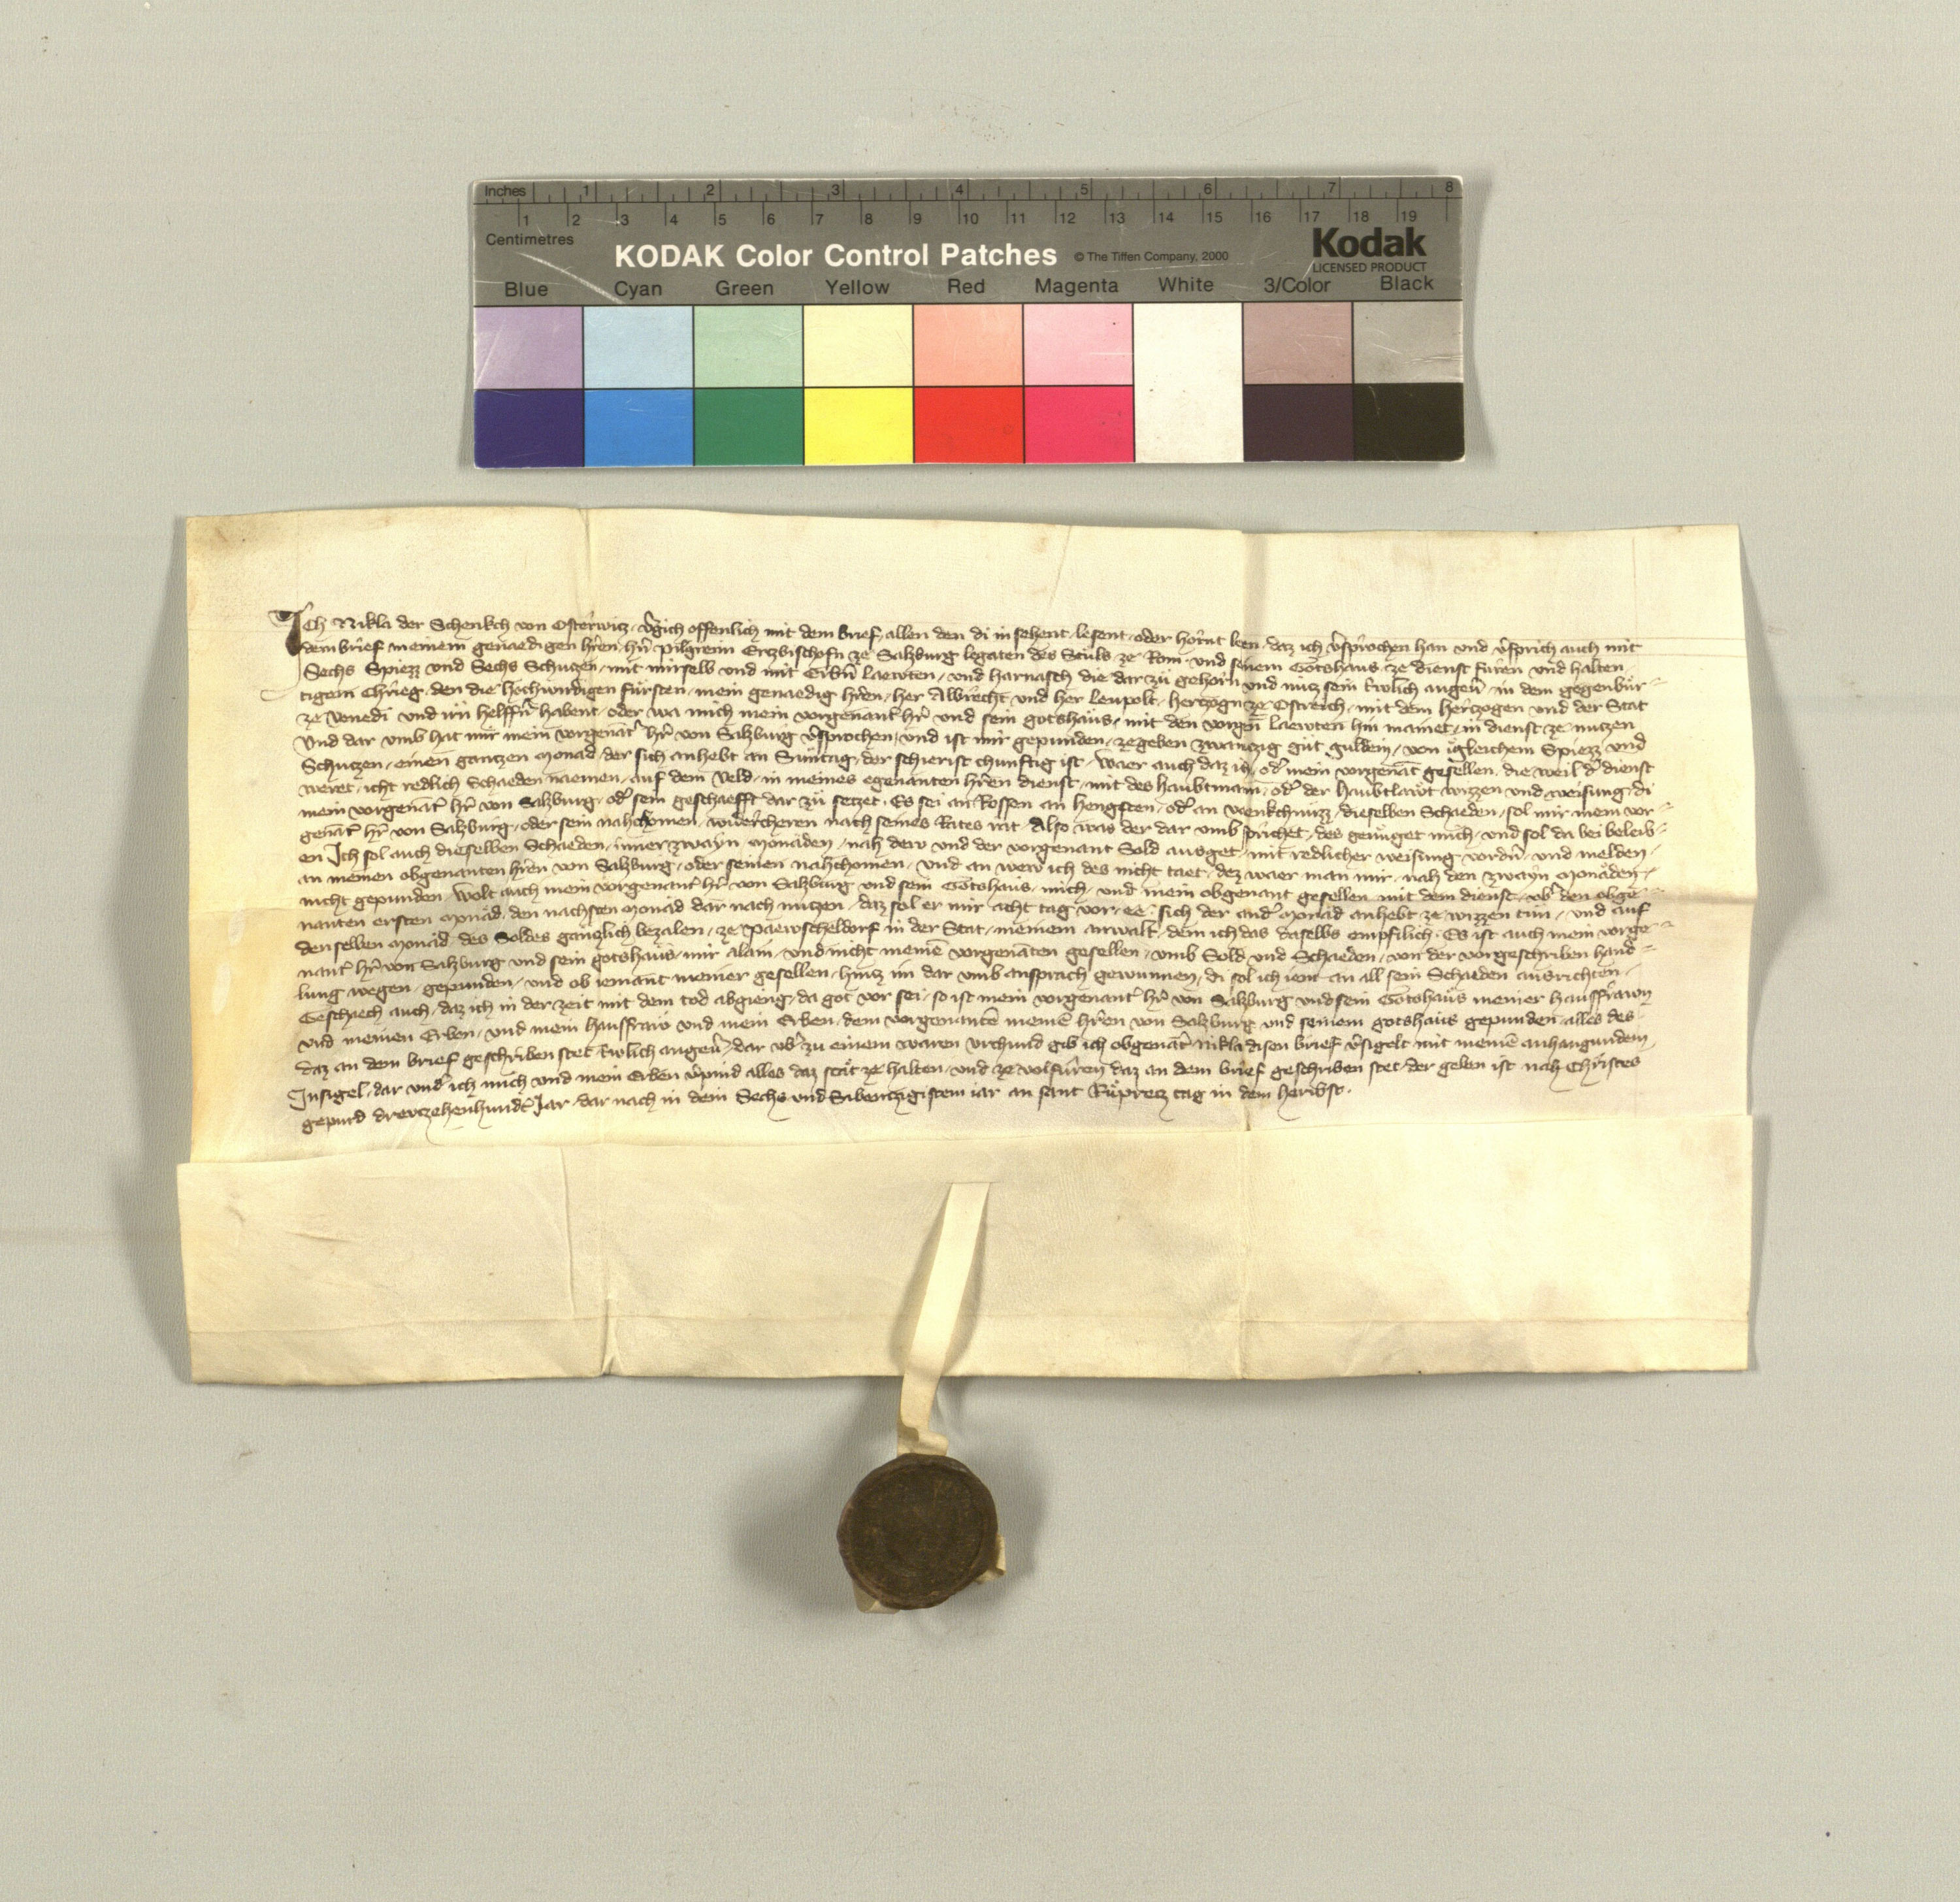 Inches 1 2 3 4 5 6 7 8
1 2 3 4 5 6 7 8 9 10 11 12 13 14 15 16 17 18 19
Centimetres
KODAK Color Control Patches © The Tiffen Company, 2000 Kodak
LICENSED PRODUCT
Blue Cyan Green Yellow Red Magenta White 3/Color Black
Ich Nikla der Schenkch von Osterwitz v̂gich offenlich mit dem brief allen den di in sehent lesent oder hornt lesen daz ich v̂sprochen han und v̂sprich auch mit
dem brief meinem genaedigen hr̂en hr̂n pilgreim Erzbischofn ze Salzburg legaten des Stuls ze Rom und seinem Gotshaus ze dienst furen und halten
Sechs Spiezz und Sechs Schuczen mit mirselb und mit Erbn̂ laewten und harnasch die dar zů gehorn und nucz sein trwlich angeu̔ in dem gegenbür
tigem Chrieg den die hochwirdigen fürsten mein genaedig hr̂en her Albrecht und her leupolt herczogn ze Ostreich mit dem herczogen und der Stat
ze Venedi und irn helffn̂ habent oder wa mich mein vorgenant̂ hr̂ und sein gotshaus mit den vorgn̄ laewten hin mainet in dienst ze nutzen
Und dar umb hat mir mein vorgenāt̂ hr̂ von Salzburg v̂sprochen und ist mir gepunden ze geben zwainczig gůt guldein von igleichem Spiezz und
Schuczen einen ganczen Monad der sich anhebt an Suntag der schierist chunftig ist Waer auch daz ich od̂ mein vorgenāt gesellen die weil d̂ dienst
weret icht redlich Schaeden naemen auf dem veld in meines egenanten hr̂en dienst mit des haubtmann od̂ der haubtlawt wizzen und weisung di
mein vorgenāt̂ hr̂ von Salzburg od̂ sein geschaefft dar zů seczet Es sei an Rossen an hengsten od̂ an venkchnuzz dieselben Schaeden sol mir mein vor
genāt̂ hr̂ von Salzburg oder sein nahchomen widercheren nach seines Rates rat Also was der dar umb sprichet des genůget mich und sol da bei beleib
en Ich sol auch dieselben Schaeden inner zwayn Monaden nah dem und der vorgenant Sold ausget mit redlicher weisung vordn̂ und melden
an meinen obgenanten hr̂en von Salzburg oder seinen nahchomen und an wew ich des nicht taet dez waer man mir nah den zwayn Monaden
nicht gepunden Wolt auch mein vorgenant̂ hr̂ von Salzburg und sein Gotshaus mich und mein obgenant gesellen mit dem dienst vb̂ den obge
nanten ersten Monad den nachsten Monad dar nach nuczen daz sol er mir acht tag vor ee sich der and̂ Monad anhebt ze wizzen tun und auf
denselben Monad des Soldes ganczlich bezalen ze Paewscheldorf in der Stat meinem anwalt dem ich das daselbs empfilich Es ist auch mein vorge
nant̂ hr̂ von Salzburg und sein gotshaus mir alain und nicht meinē vorgenāten gesellen umb Sold und Schaeden von der vorgeschriben hand
lung wegen gepunden und ob iemant meiner gesellen hincz im dar umb ansprach gewunnen di sol ich an all sein Schaeden ausrichten
Geschaech auch daz ich in der zeit mit dem tod abgieng da got vor sei so ist mein vorgenant̂ hr̂ von Salzburg und sein Gotshaus meiner hausfrawn
und meinen Erben und mein hausfraw und mein Erben dem vorgenantē meinē hr̂en von Salzburg und seinem gotshaus gepunden alles des
daz an dem brief geschriben stet trwlich angeu̔ dar vb̂ zu einem waren urchund gib ich obgenāt̂ Nikla disen brief v̂sigelt mit meinē anhangundem
Insigel dar und̂ ich mich und mein Erben v̂pind alles daz staet ze halten und ze volfůren daz an dem brief geschriben stet der geben ist nah Christes
gepurd drewczehenhund̂t Jar dar nach in dem Sechs und Sibenczigistem iar an sant Růprecz tag in dem herbst